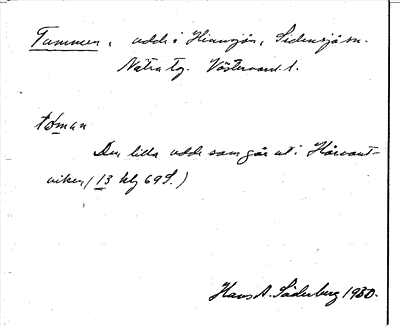 Tummen, udde i Hinnsjön, Sidensjö sn.
Nätra tg. Västernorrl. l.
tóman
Den lilla udde som går ut i Hårvant-
viken (13 kbj 69S.)
Hans A. Söderberg 1980.